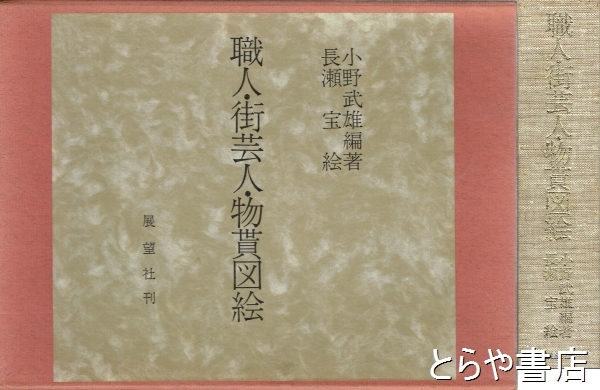 小野武雄編著
長瀬宝絵
職人・街芸人・物貰図絵
展望社刊
職人・街芸人・物貰図絵
小野武雄編著
長瀬宝絵
とらや書店